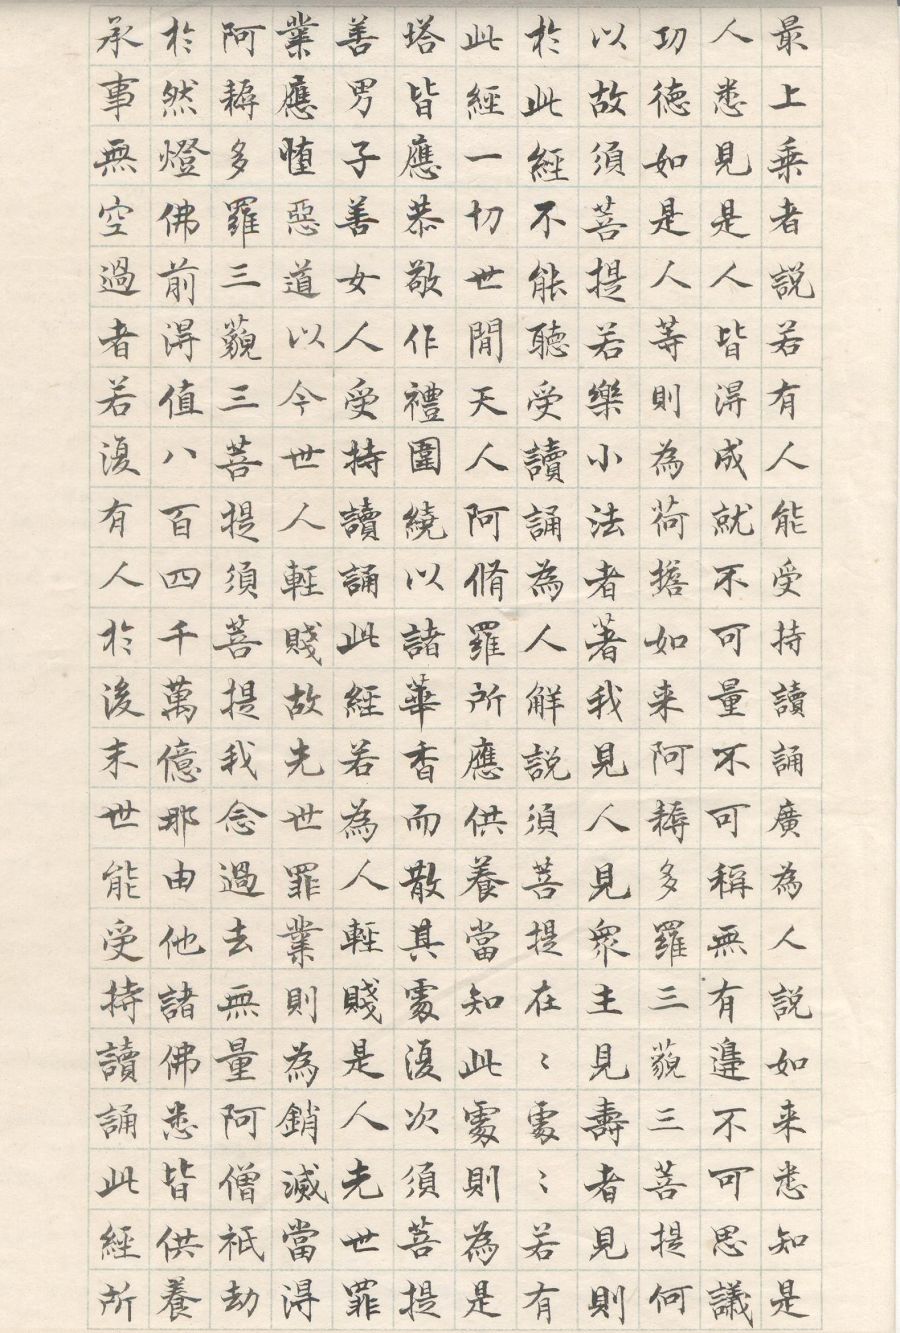 最上乘者說若有人能受持讀誦廣為人說如来悉知是
人悉見是人皆得成就不可量不可稱無有邉不可思議
功德如是人等則為荷擔如来阿耨多羅三藐三菩提何
以故須菩提若樂小法者著我見人見衆生見壽者見則
於此經不能聽受讀誦為人解說須菩提在〻處〻若有
此經一切世間天人阿脩羅所應供養當知此處則為是
塔皆應恭敬作禮圍繞以諸華香而散其處復次須菩提
善男子善女人受持讀誦此經若為人輕賤是人先世罪
業應墮惡道以今世人輕賤故先世罪業則為銷滅當得
阿耨多羅三藐三菩提須菩提我念過去無量阿僧祇劫
於然燈佛前得值八百四千萬億那由他諸佛悉皆供養
承事無空過者若復有人於後末世能受持讀誦此經所